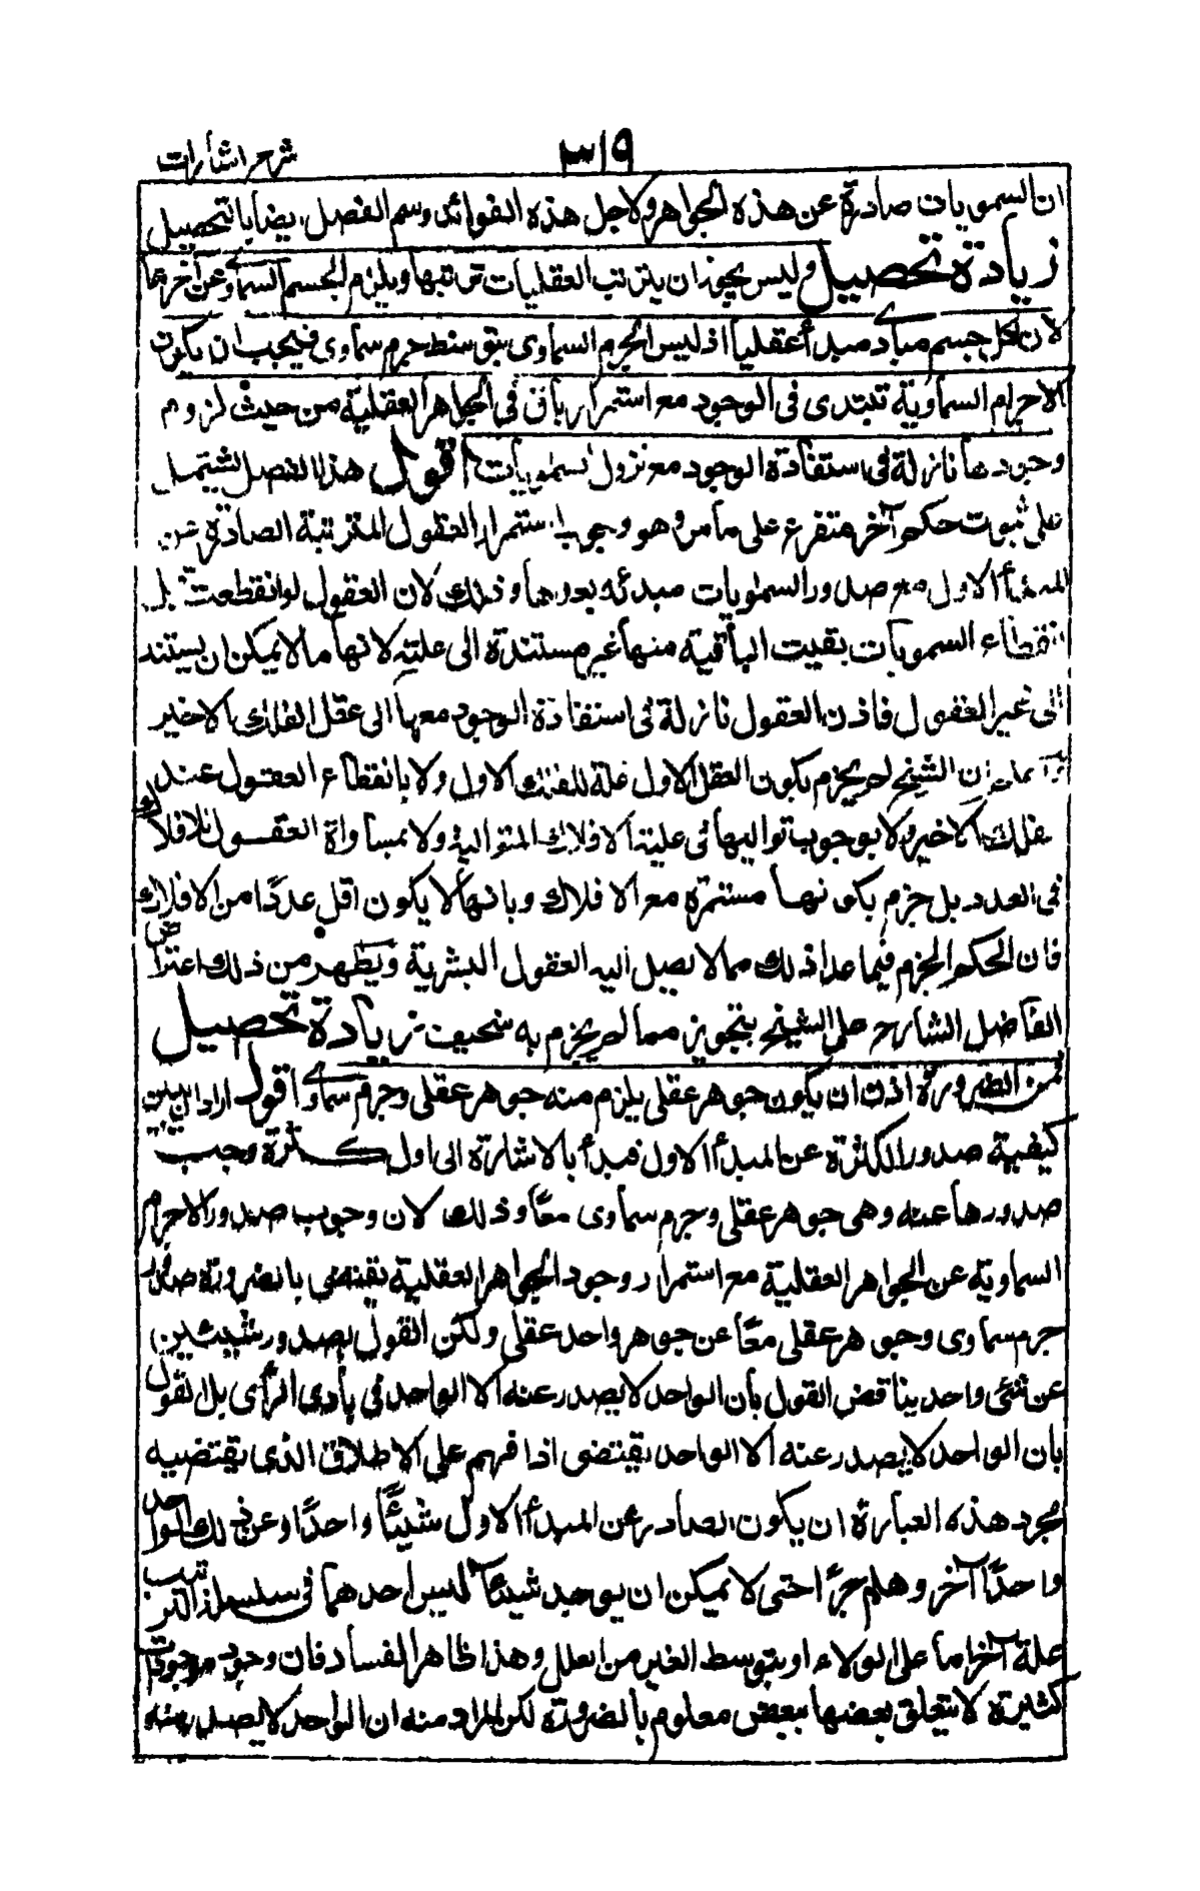 شرح اشارات
٣١٩
ان السمويات صادرة عن هذه الجواهر ولاجل هذه الفوائد وسم الفصل ايضا بالتحصيل
زيادة تحصيل وليس يجوز ان يترتب العقليات ترتبها ويلزم الجسم السماوى عن آخرها
لان لكل جسم سماوى مبدأ عقليا اذ ليس الجرم السماوى بتوسط جرم سماوى فيجب ان يكون
الاجرام السماوية تبتدى فى الوجود مع استمرار باق فى الجواهر العقلية من حيث لزوم
وجودها نازلة فى استفادة الوجود مع نزول السمويات اقول هذا الفصل يشتمل
على ثبوت حكم آخر متفرع على ما مر وهو وجوب استمرار العقول المترتبة الصادرة عن
المبدأ الاول مع صدور السمويات مبدئه بعدها وذلك لان العقول لو انقطعت قبل
انقطاع السمويات بقيت الباقية منها غير مستندة الى علة لانها مما لا يمكن ان يستند
الى غير العقول فاذن العقول نازلة فى استفادة الوجود معها الى عقل الفلك الاخير
ان الشيخ لم يجزم بكون العقل الاول علة للفلك الاول ولا بانقطاع العقول عند
الفلك الاخير ولا بوجوب تواليها فى علية الافلاك المتوالية ولا بمساواة العقول للافلاك
فى العدد بل جزم بكونها مستمرة مع الافلاك وبانها لا يكون اقل عددا من الافلاك
فان الحكم الجزم فيما عدا ذلك مما لا يصل اليه العقول البشرية ويظهر من ذلك اعتراض
الفاضل الشارح على الشيخ بتجويز مما لم يجزم به سخيف زيادة تحصيل
فمن الضرورة اذن ان يكون جوهر عقلى يلزم منه جوهر عقلى وجرم سماوى اقول اراد ان يبين
كيفية صدور الكثرة عن المبدأ الاول فبدأ بالاشارة الى اول كثرة وجب
صدورها عنه وهى جوهر عقلى وجرم سماوى معًا وذلك لان وجوب صدور الاجرام
السماوية عن الجواهر العقلية مع استمرار وجود الجواهر العقلية يقتضى بالضرورة صدور
جرم سماوى وجوهر عقلى معًا عن جوهر واحد عقلى ولكن القول بصدور شيئين
عن شئ واحد يناقض القول بأن الواحد لا يصدر عنه الا الواحد فى بادى الرأى بل القول
بان الواحد لا يصدر عنه الا الواحد يقتضى اذا فهم على الاطلاق الذى يقتضيه
مجرد هذه العبارة ان يكون الصادر عن المبدأ الاول شيئًا واحدًا وعن ذلك الواحد
واحدًا آخر وهلم جرّا حتى لا يمكن ان يوجد شيئان ليس احدهما فى سلسلة الترتيب
علة آخر اما على الولاء او بتوسط الغير من العلل وهذا ظاهر الفساد فان وجود موجودات
كثيرة لا يتعلق بعضها ببعض معلوم بالضرورة لكن المراد منه ان الواحد لا يصدر عنه